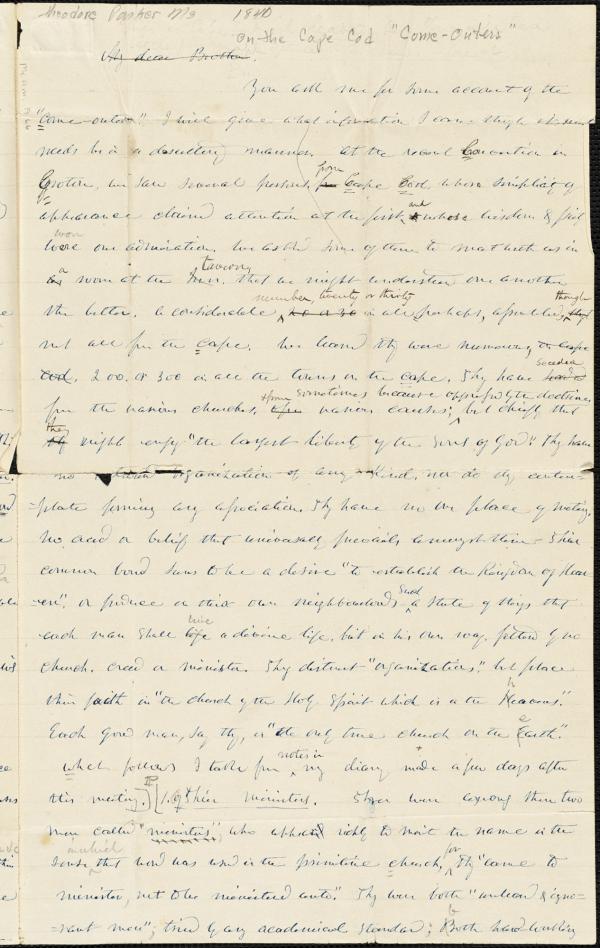 Theodore Parker Ms 1840
On the Cape Cod "Come-Outers"
My dear Brother.
You ask me for some account of the
"Come-outers". I will give what information I can, though it
needs be in a desultory manner. At the recent Convention in
Groton, we saw several persons, from Cape Cod, whose simplicity of
appearance claimed attention at the first, and whose wisdom &
won our admiration. We asked some of them to meet with us in
a room at the tavern, that we might understand one another
the better. A considerable number, twenty or thirty in all perhaps, assembled, though
not all from the Cape. We learned they were numerous, on Cape
Cod, 200 or 300 in all the towns on the Cape. They have seceded
from the various churches, from various causes; sometimes because opposing the doctrines but chiefly that
they might enjoy "the largest liberty of the sons of God". They have
no organization of any kind, nor do they contem-
-plate forming any association. They have no one place of meeting,
no creed or belief that universally prevails amongst them. Their
common bond seems to be a desire "to establish the Kingdom of Heav-
-en", or produce in their own neighbourhoods such a state of things that
each man shall live a divine life, but in his own way, fettered by no
church, creed or minister. They distrust "organizations", but place
their faith in "the church of the Holy Spirit which is in the Heavens".
Each good man, say they, is "the only true church on the earth".
What follows I take from notes in my diary made a few days after
this meeting. Their ministers. There were among them two
men called "ministers", who appeared richly to merit the name in the
sense in which that word was used in the primitive church, for they "came to
minister, not to be ministered unto". They were both "unlearned & igno-
-rant men"; tried by any academical standard; Both hard-working